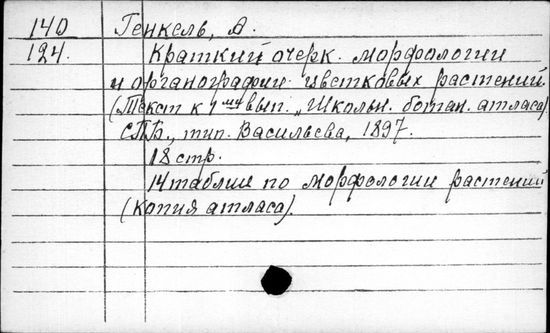 140 Генкель, А.
124. Краткий очерк морфологии
и органографии цветковых растений.
(Текст к 1му вып. "Школьн. ботан. атласа).
СПБ., тип. Васильева, 1897.
18 стр.
14 таблиц по морфологии растений
(копия атласа).